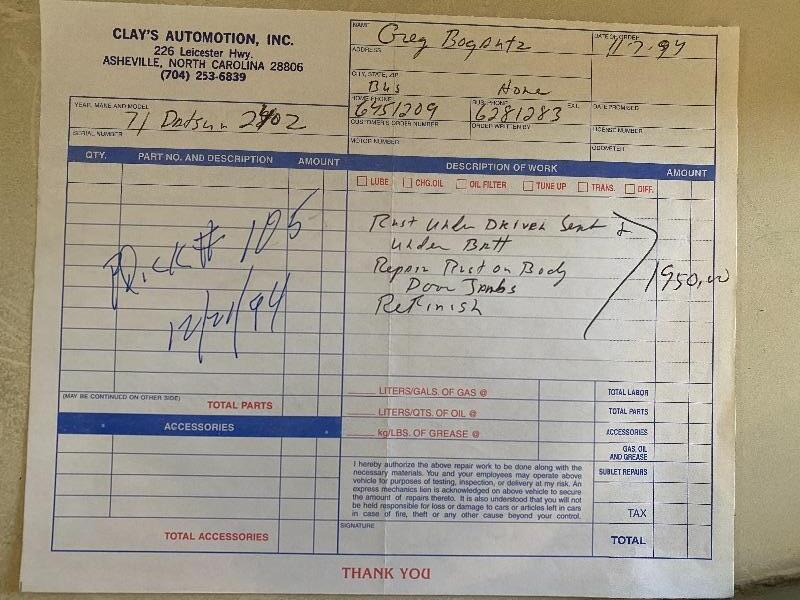 CLAY'S AUTOMOTION, INC.
226 Leicester Hwy.
ASHEVILLE, NORTH CAROLINA 28806
(704) 253-6839
NAME
Greg Bogantz
DATE OF ORDER
11-7-94
ADDRESS
CITY, STATE, ZIP
Bus Home
HOME PHONE
6451209
BUS. PHONE
6281283
EXT.
DATE PROMISED
YEAR, MAKE AND MODEL
71 Datsun 240Z
SERIAL NUMBER
CUSTOMER'S ORDER NUMBER
ORDER WRITTEN BY
LICENSE NUMBER
MOTOR NUMBER
ODOMETER
QTY. PART NO. AND DESCRIPTION AMOUNT
DESCRIPTION OF WORK AMOUNT
LUBE CHG.OIL OIL FILTER TUNE UP TRANS. DIFF.
Rust Under Driver Seat &
Under Batt
Repair Rust on Body
Door Jambs
Refinish
1950.00
12/21/94
(MAY BE CONTINUED ON OTHER SIDE)
TOTAL PARTS
ACCESSORIES
TOTAL ACCESSORIES
LITERS/GALS. OF GAS @
LITERS/QTS. OF OIL @
kg/LBS. OF GREASE @
TOTAL LABOR
TOTAL PARTS
ACCESSORIES
GAS, OIL
AND GREASE
SUBLET REPAIRS
TAX
TOTAL
I hereby authorize the above repair work to be done along with the
necessary materials. You and your employees may operate above
vehicle for purposes of testing, inspection, or delivery at my risk. An
express mechanics lien is acknowledged on above vehicle to secure
the amount of repairs thereto. It is also understood that you will not
be held responsible for loss or damage to cars or articles left in cars
in case of fire, theft or any other cause beyond your control.
SIGNATURE
THANK YOU